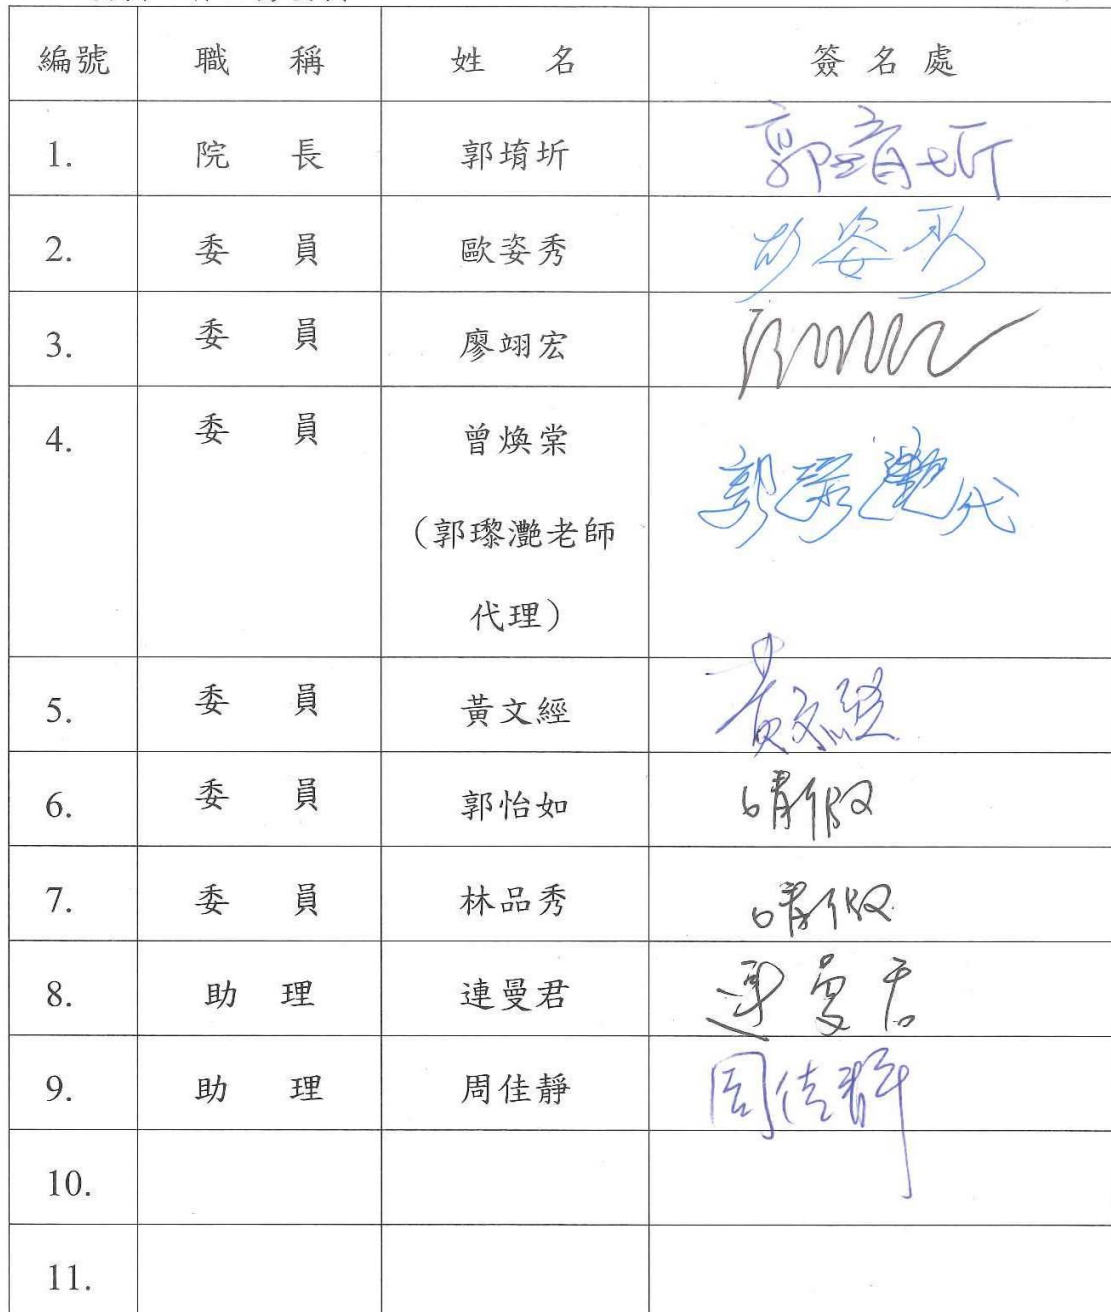 編號 職稱 姓名 簽名處
1. 院長 郭堉圻 郭堉圻
2. 委員 歐姿秀 歐姿秀
3. 委員 廖翊宏
4. 委員 曾煥棠 郭瓈灔代
(郭瓈灔老師
代理)
5. 委員 黃文經 黃文經
6. 委員 郭怡如 請假
7. 委員 林品秀 請假
8. 助理 連曼君 連曼君
9. 助理 周佳靜 周佳靜
10.
11.